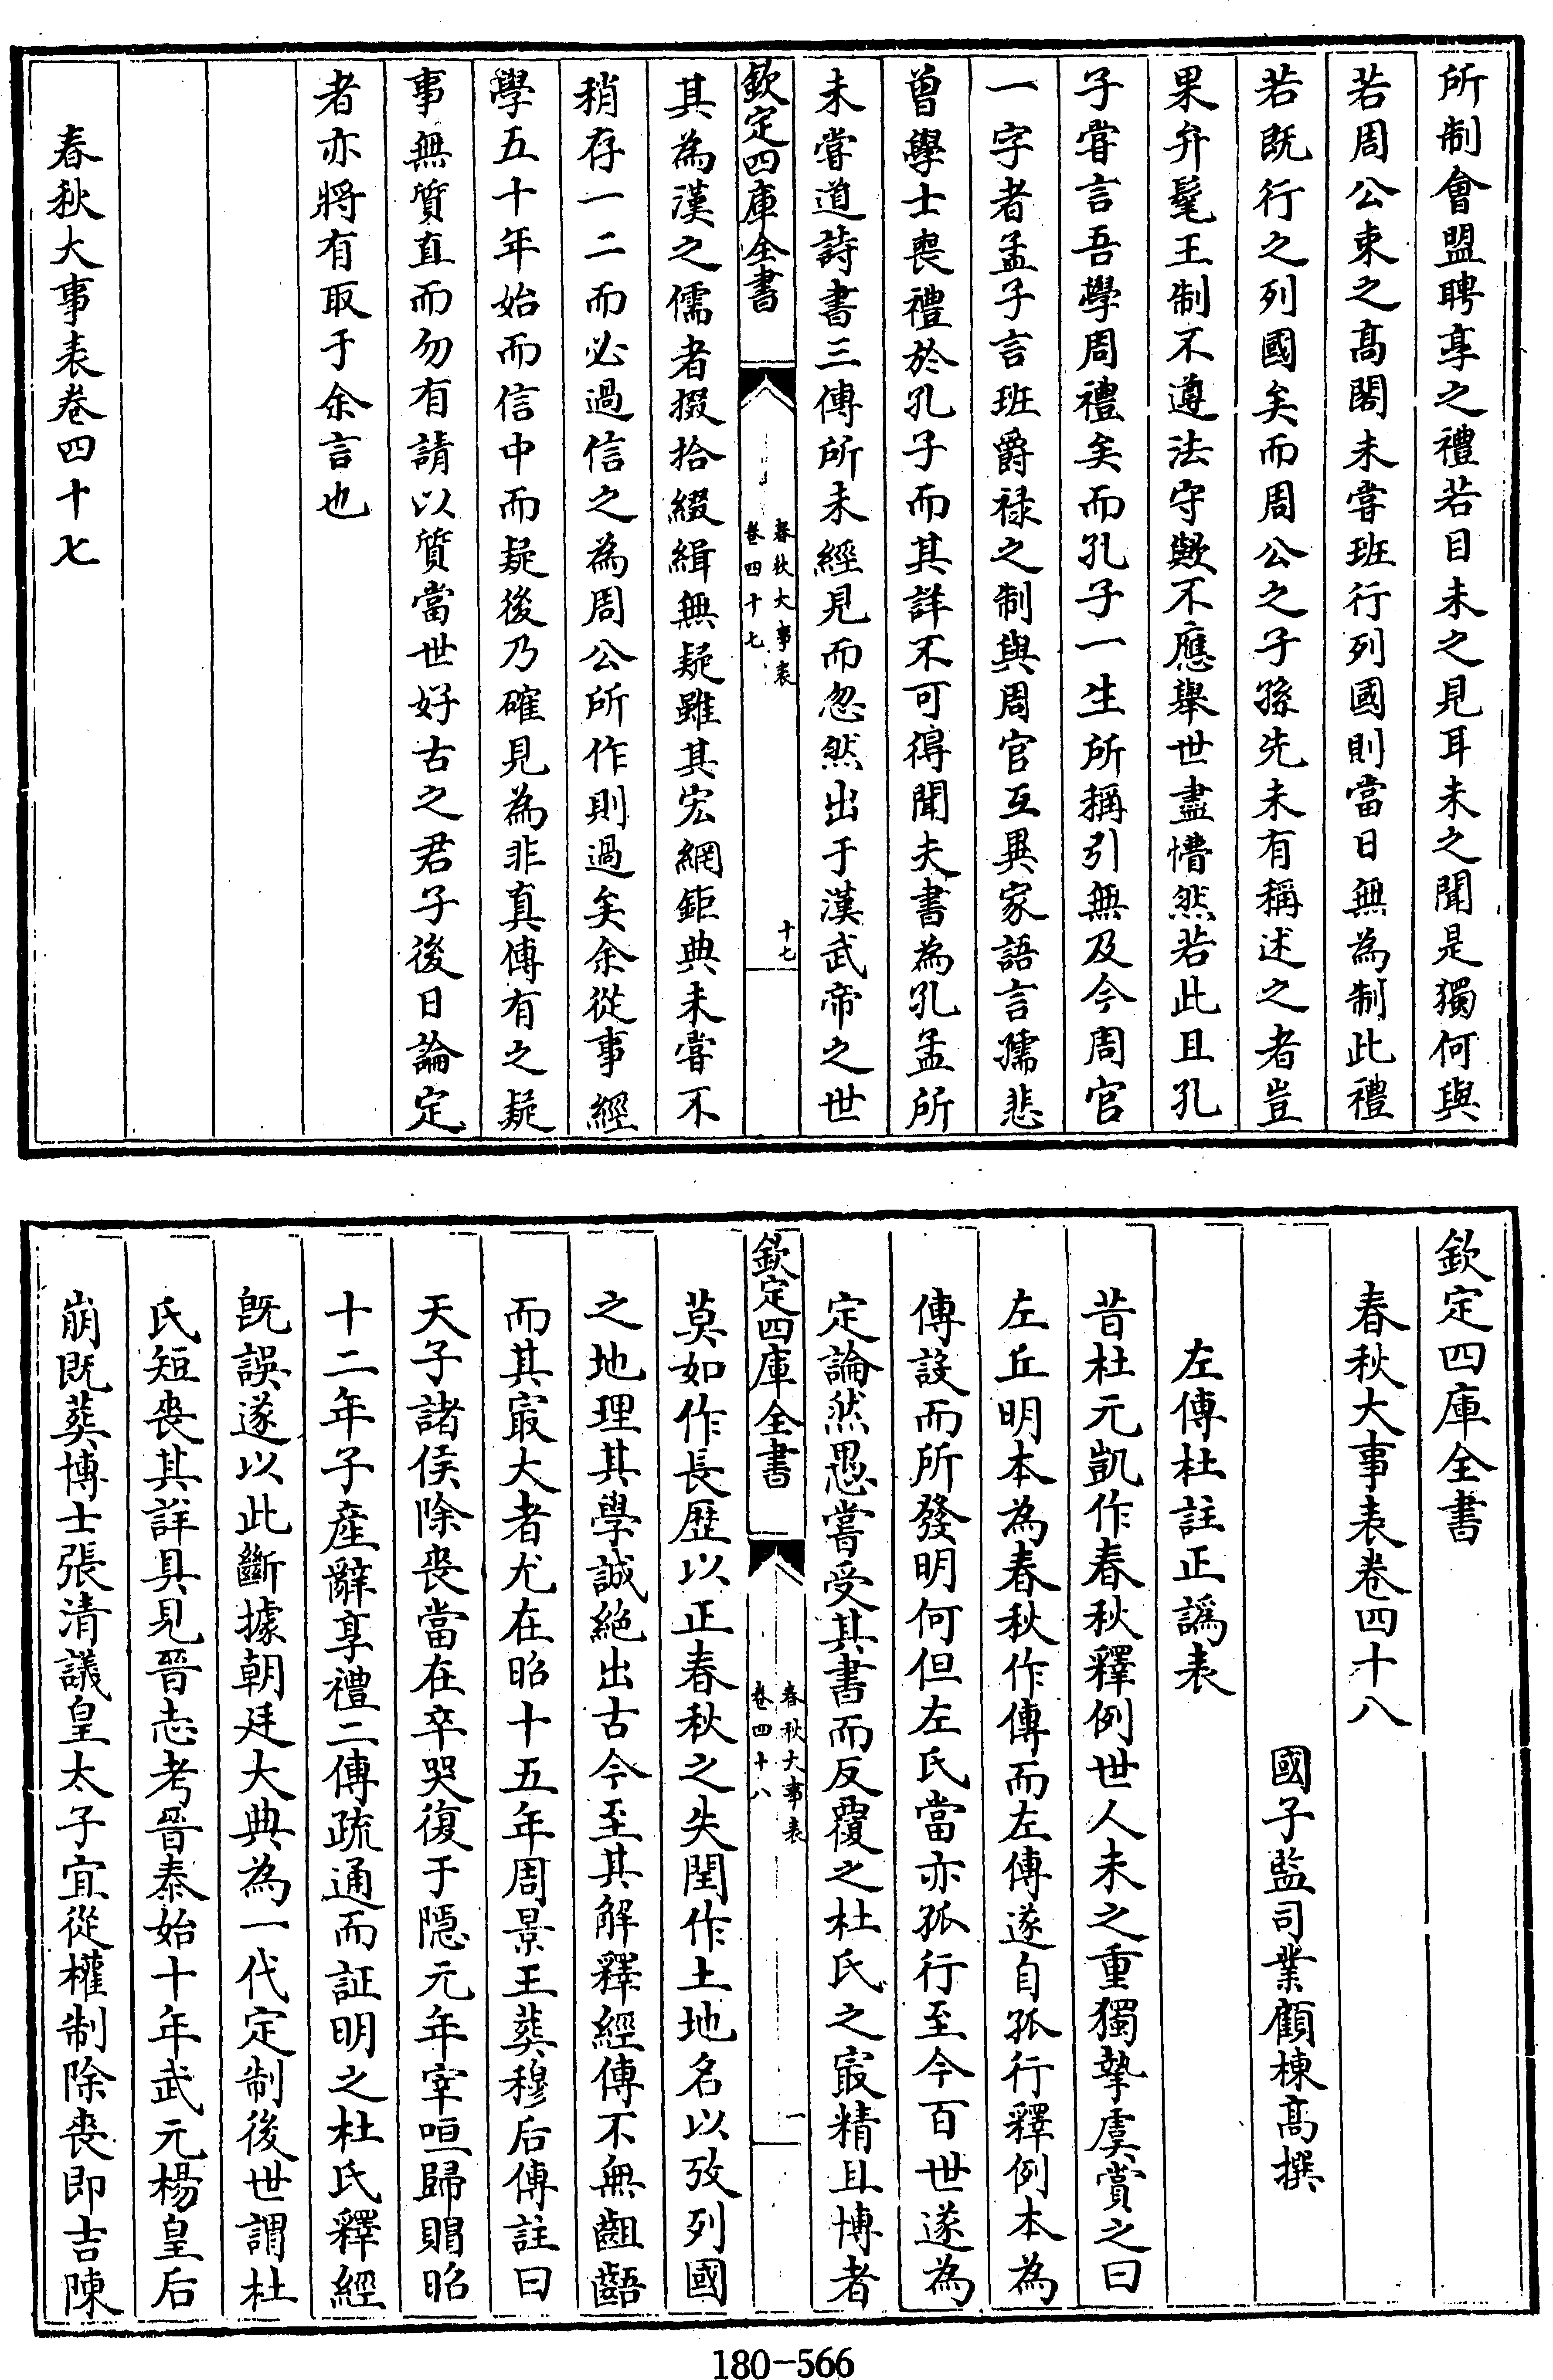 所制會盟聘享之禮若目未之見耳未之聞是獨何與
若周公束之髙閣未嘗班行列國則當日無為制此禮
若既行之列國矣而周公之子孫先未有稱述之者豈
果弁髦王制不遵法守歟不應舉世盡懵然若此且孔
子嘗言吾學周禮矣而孔子一生所稱引無及今周官
一字者孟子言班爵禄之制與周官互異家語言孺悲
曾學士喪禮於孔子而其詳不可得聞夫書為孔孟所
未嘗道詩書三傳所未經見而忽然出于漢武帝之世
欽定四庫全書
春秋大事表
卷四十七
十七
其為漢之儒者掇拾綴緝無疑雖其宏網鉅典未嘗不
稍存一二而必過信之為周公所作則過矣余從事經
學五十年始而信中而疑後乃確見為非真傳有之疑
事無質直而勿有請以質當世好古之君子後日論定
者亦將有取于余言也
春秋大事表卷四十七
欽定四庫全書
春秋大事表卷四十八
國子監司業顧棟髙撰
左傳杜註正譌表
昔杜元凱作春秋釋例世人未之重獨摯虞賞之曰
左丘明本為春秋作傳而左傳遂自孤行釋例本為
傳設而所發明何但左氏當亦孤行至今百世遂為
定論然愚嘗受其書而反覆之杜氏之㝡精且博者
欽定四庫全書
春秋大事表
卷四十八
一
莫如作長歴以正春秋之失閏作土地名以攷列國
之地理其學誠絶出古今至其解釋經傳不無齟齬
而其㝡大者尤在昭十五年周景王葬穆后傳註曰
天子諸侯除喪當在卒哭復于隠元年宰咺歸賵昭
十二年子産辭享禮二傳疏通而証明之杜氏釋經
既誤遂以此斷據朝廷大典為一代定制後世謂杜
氏短喪其詳具見晉志考晉泰始十年武元楊皇后
崩既葬博士張清議皇太子宜從權制除喪即吉陳
180-566